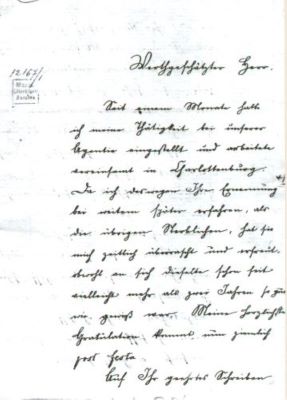 12162/1
Werthgeschätzter Herr.
Seit einem Monate hatte
ich meine Thätigkeit bei unserer
Agentie eingestellt und arbeitete
vereinsamt in Charlottenburg.
Da ich deswegen Ihre Ernennung
bei weitem später erfahren, als
die übrigen Sterblichen, hat sie
mich zeitlich überrascht und erfreut,
obwohl an sich dieselbe schon seit
vielleicht mehr als zwei Jahren so gut
wie gewiß war. Meine herzlichste
Gratulation kommt nun ziemlich
post festa
Auf Ihr geehrtes Schreiben